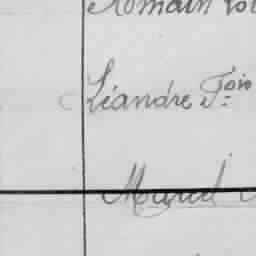 Romain
Léandre Fois
Marcel